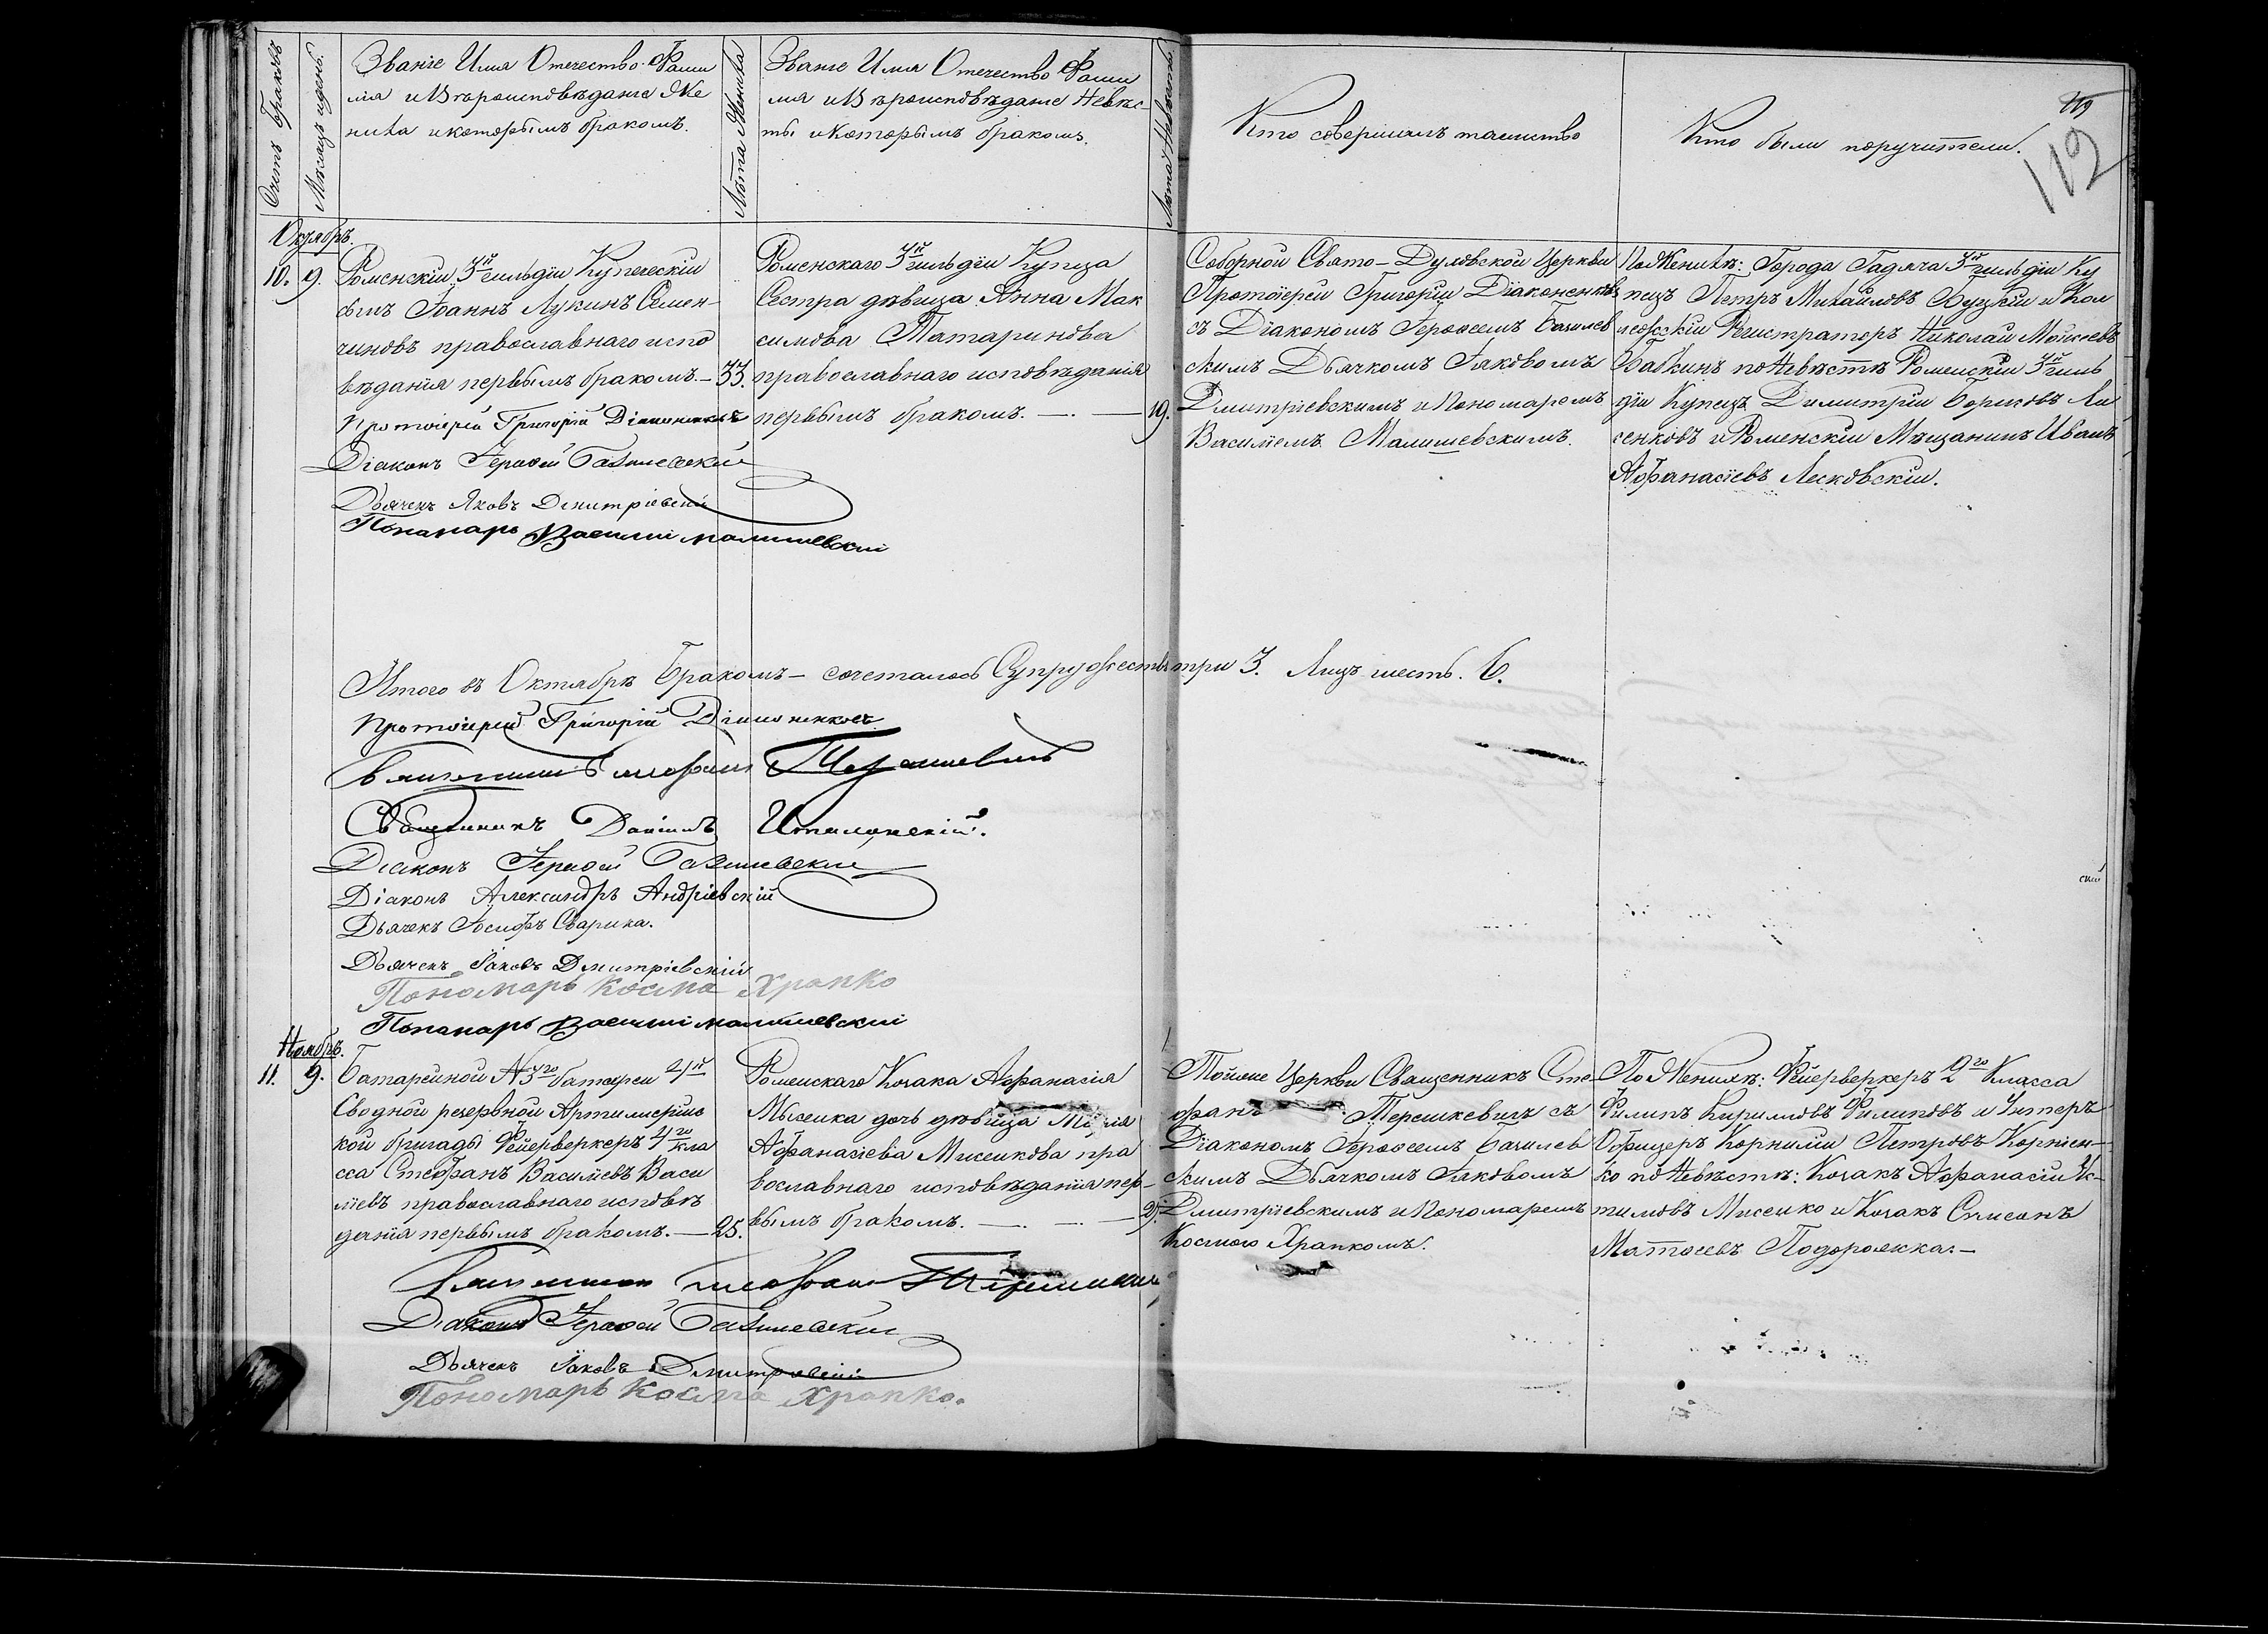 Счетъ браковъ
Мѣсяцъ и день.
Званіе Имя Отечество Фами
лія и Вѣроисповѣданіе Же
ниха и которымъ бракомъ.
Лѣта Жениха
Званіе Имя Отечество Фами
лія и Вѣроисповѣданіе Невѣс-
ты и которымъ бракомъ.
Лѣта Невѣсты
Кто совершалъ таинство
Кто были поручители.
112
Октябрь.
10. 9.
Роменскій 3й гильдіи Купеческій
сынъ Іоаннъ Лукинъ Семен-
чиновъ православнаго испо
вѣданія первымъ бракомъ. — 33.
Протоіерей Григорій Діаконенковъ
Діаконъ Іерофей Базилевскій
Дьячекъ Яковъ Дмитріевскій
Понамарь Василій Малишевскій
Роменскаго 3й гильдіи Купца
Сестра дѣвица Анна Мак
симова Татаринова
православнаго исповѣданія
первымъ бракомъ. — 19.
Соборной Свято-Духовской Церкви
Протоіерей Григорій Діаконенковъ
съ Діакономъ Іерофеемъ Базилев
скимъ Дьячкомъ Іаковомъ
Дмитріевскимъ и Пономаремъ
Василіемъ Малишевскимъ.
По Женихѣ: Города Гадяча 3й гильдіи Ку
пецъ Петръ Михайловъ Буцкій и Кол
лежскій Регистраторъ Николай Моисеевъ
Бабкинъ по Невѣстѣ Роменскій 3й гиль
діи Купецъ Димитрій Борисовъ Ли
сенковъ и Роменскій Мѣщанинъ Иванъ
Афанасіевъ Лесковскій.
Итого въ Октябрѣ Бракомъ — сочеталось Супружествъ три 3. Лицъ шесть. 6.
Протоіерей Григорій Діаконенковъ
Священникъ Стефанъ Терешкевичъ
Священникъ Даніилъ
Діаконъ Іерофей Базилевскій
Діаконъ Александръ Андріевскій
Дьячекъ Іосифъ Сварика.
Дьячекъ Іаковъ Дмитріевскій
Пономарь Косма Храпко
Понамарь Василій Малишевскій
Ноябрь.
11. 9.
Батарейной №3го батареи 4й
Сводной резервной Артиллерійс
кой бригады Фейерверкеръ 4го кла
сса Стефанъ Василіевъ Васи
ліевъ православнаго исповѣ
данія первымъ бракомъ. — 25.
Роменскаго Козака Афанасія
Мысенка дочь дѣвица Марія
Афанасіева Мисенкова пра
вославнаго исповѣданія пер-
вымъ бракомъ.
Тойже Церкви Священникъ Сте
фанъ Терешкевичъ съ
Діакономъ Іерофеемъ Базилев
скимъ Дьячкомъ Іаковомъ
Дмитріевскимъ и Пономаремъ
Космою Храпкомъ.
По Женихѣ: Фейерверкеръ 2го Класса
Филипъ Кириловъ Филиповъ и Унтеръ
Офицеръ Корнилій Петровъ Корніен-
ко по Невѣстѣ: Козакъ Афанасій
Мисенко и Козакъ Стисанъ
Матвѣевъ Подорожка. —
Священникъ Стефанъ Терешкевичъ
Діаконъ Іерофей Базилевскій
Дьячекъ Іаковъ Дмитріевскій
Пономарь Косма Храпко.